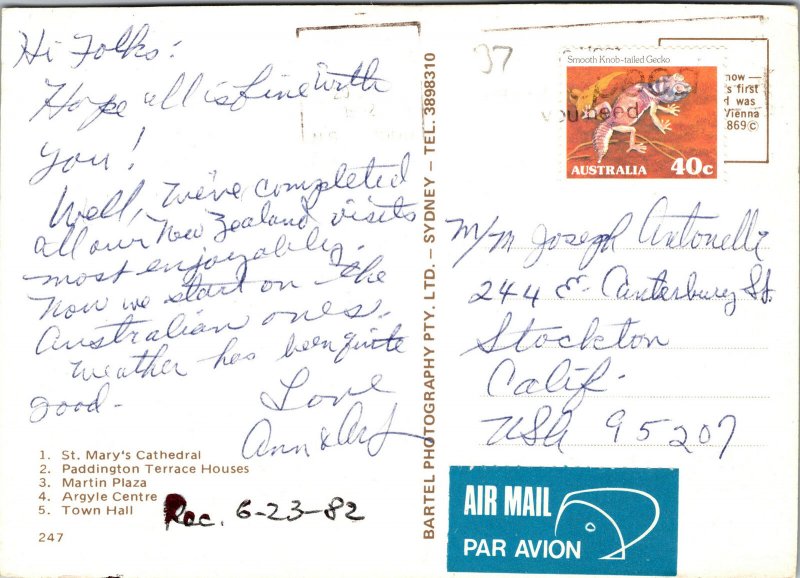 Hi Folks:
Hope all is fine with
you!
Well, we've completed
all our New Zealand visits
most enjoyably.
Now we start on the
Australian ones.
Weather has been quite
good.
Love
Ann & Art
1. St. Mary's Cathedral
2. Paddington Terrace Houses
3. Martin Plaza
4. Argyle Centre
5. Town Hall
247
Rec. 6-23-82
BARTEL PHOTOGRAPHY PTY. LTD. – SYDNEY – TEL. 3898310
37
Smooth Knob-tailed Gecko
AUSTRALIA 40c
you need
now —
s first
d was
Vienna
869©
M/M Joseph Antonelli
244 E. Canterbury St.
Stockton
Calif.
USA 95207
AIR MAIL
PAR AVION